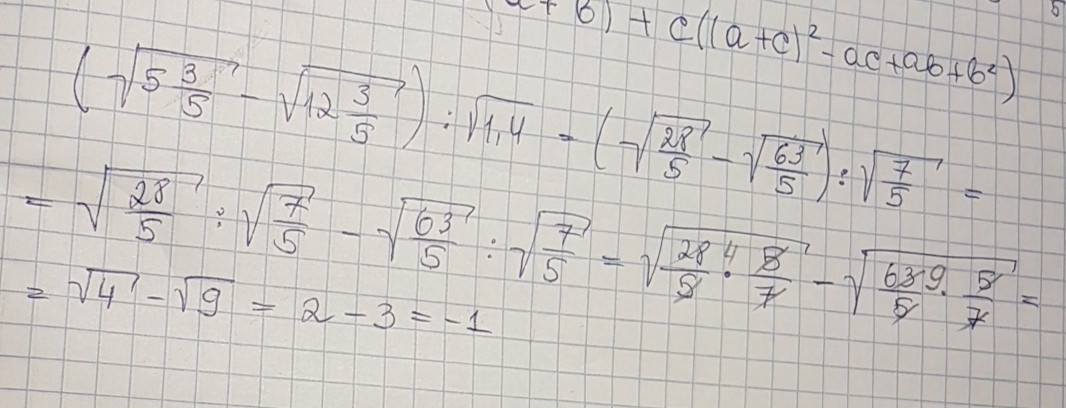 a + b) + c((a+c)² - ac + ab + b²)
(√(5 3/5) - √(12 3/5)) : √(1,4) = (√(28/5) - √(63/5)) : √(7/5) =
= √(28/5) : √(7/5) - √(63/5) : √(7/5) = √(28 4/5 · 5/7) - √(63 9/5 · 5/7) =
= √4 - √9 = 2 - 3 = -1